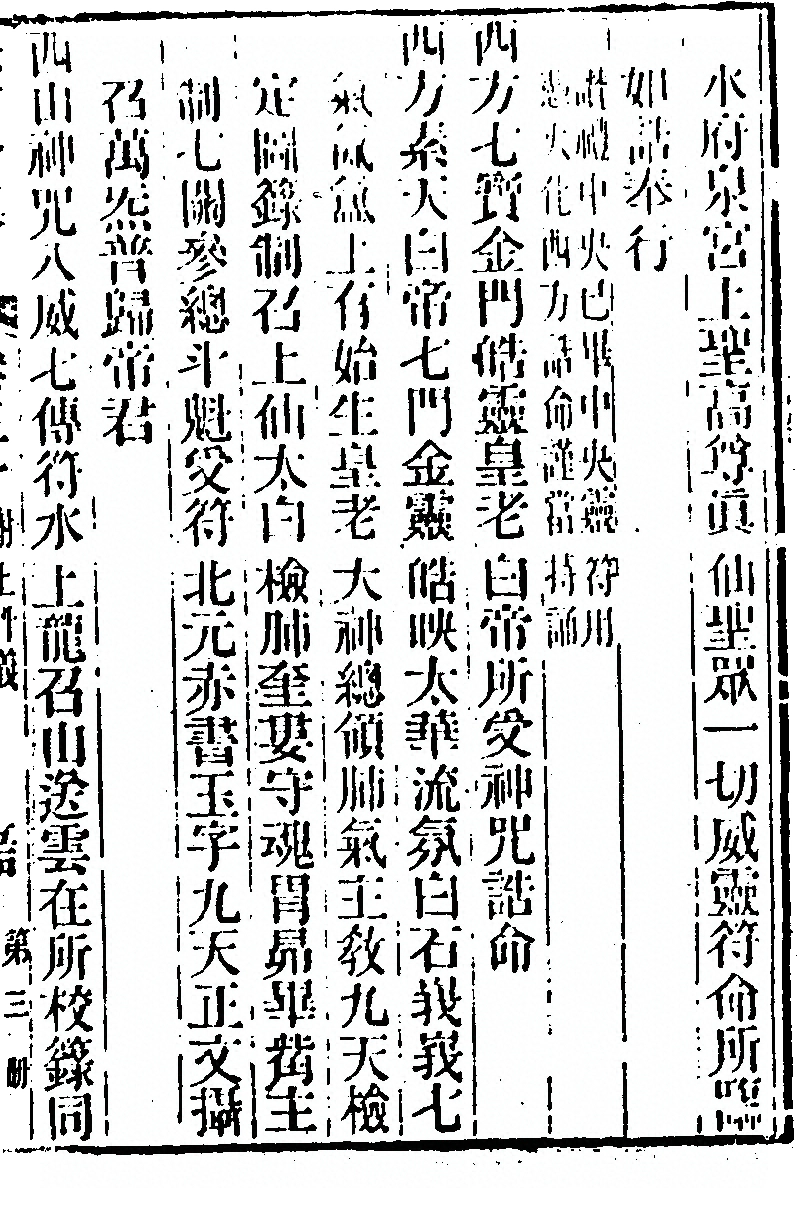 水府泉宮上聖高尊眞仙聖眾一切威靈符命所臨
如誥奉行
讃禮中央已畢中央靈符用
大化西方誥命謹當持誦
西方七寶金門皓靈皇老白帝所受神咒誥命
西方素天白帝七門金靈皓映太華流氛白石峩峩七
氣氤氳上有始生皇老大神總領肺氣主教九天檢
定圖錄制召上仙太白檢肺至婁守魂胃昴畢觜主
制七關參總斗魁受符北元赤書玉字九天正文攝
召萬炁普歸帝君
西山神咒八威七傳符水上龍召山送雲在所校錄同
謝土科儀
第三冊